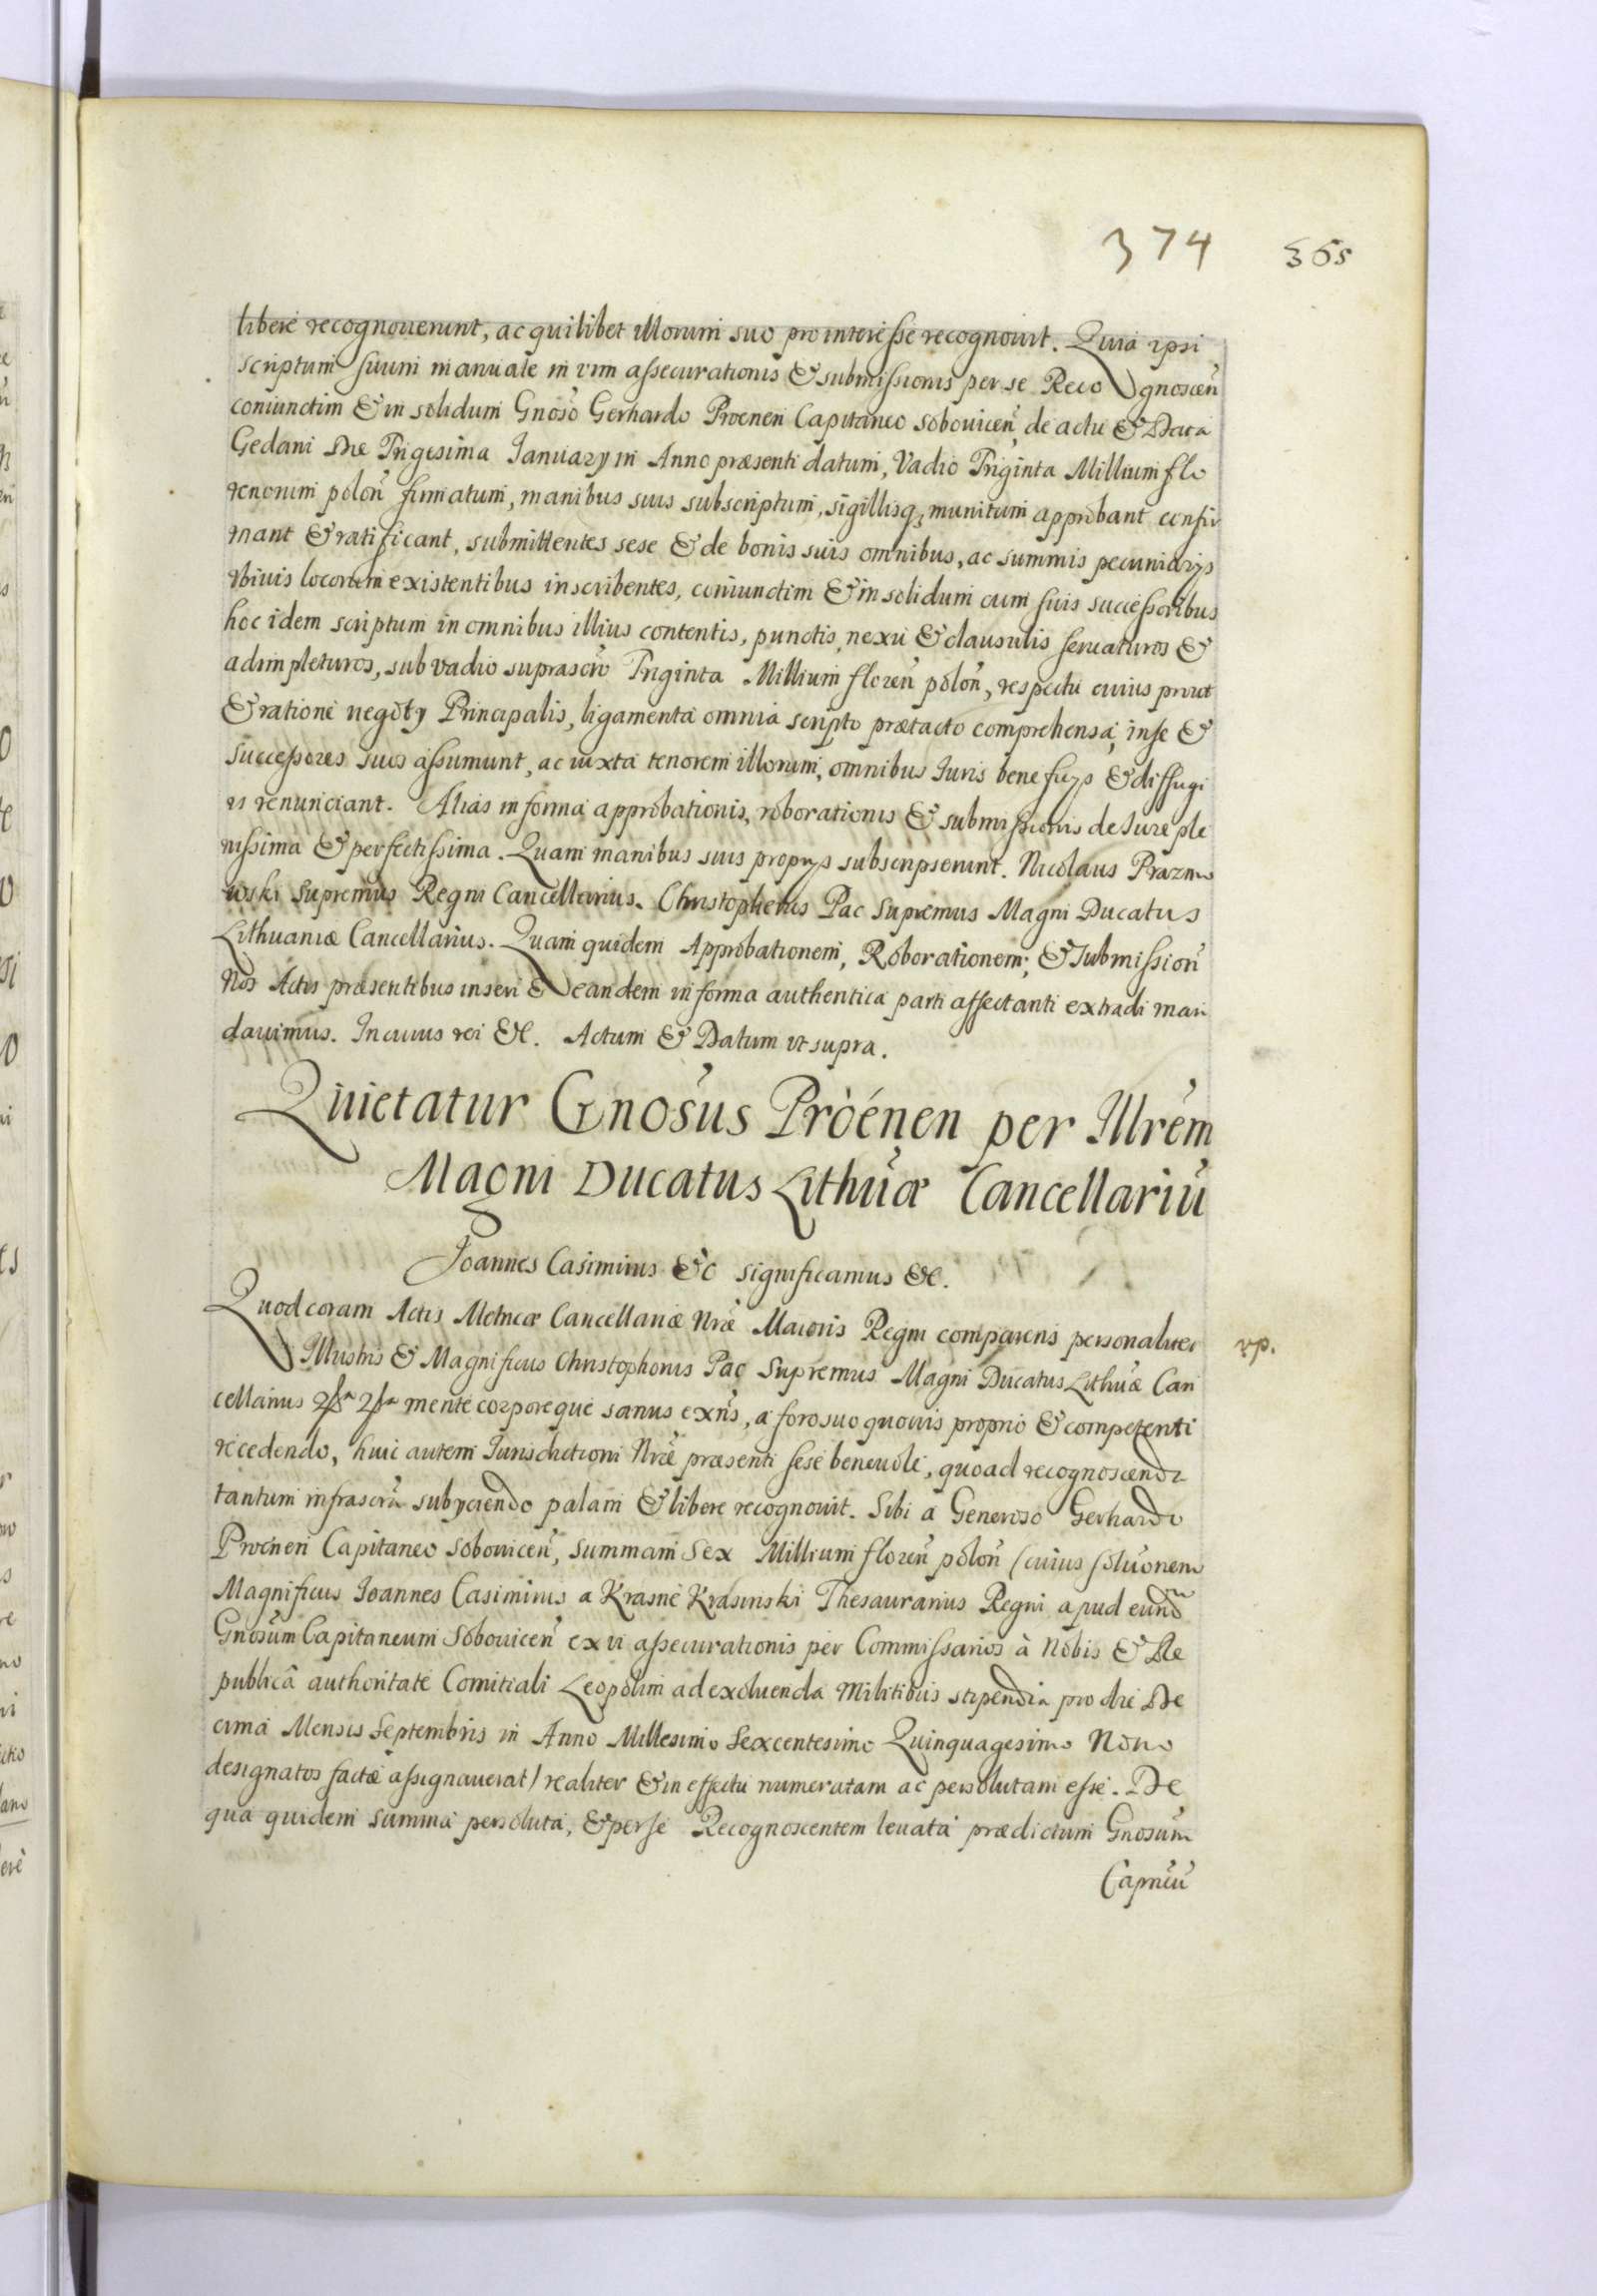 374 365
liberè recognouerunt, ac quilibet illorum suo pro interesse recognouit. Quia ipsi
scriptum suum manuale in vim assecurationis & submissionis per se Recognoscen̄
coniunctim & in solidum Gnoso Gerhardo Proenen Capitaneo Sobouicen̄, de actu & Data
Gedani Die Trigesima January in Anno præsenti datum, Vadio Triginta Millium flo
renorum polon̄ firmatum, manibus suis subscriptum, sigillisq; munitum approbant confir
mant & ratificant, submittentes sese & de bonis suis omnibus, ac summis pecuniarijs
vbiuis locorum existentibus inscribentes, coniunctim & in solidum cum suis successoribus
hoc idem scriptum in omnibus illius contentis, punctis, nexu & clausulis seruaturos &
adimpleturos, sub vadio suprascro Triginta Millium floren̄ polon̄, respectu cuius prout
& ratione negoty Principalis, ligamenta omnia scripto prætacto comprehensa, in se &
successores suos assumunt, ac iuxta tenorem illorum, omnibus Iuris beneficys & diffugi
is renunciant. Alias in forma approbationis, roborationis & submissionis de Iure ple
nissima & perfectissima. Quam manibus suis proprys subscripserunt. Nicolaus Prazmo
wski Supremus Regni Cancellarius. Christophorus Pac Supremus Magni Ducatus
Lithuaniæ Cancellarius. Quam quidem Approbationem, Roborationem, & Submission̄
Nos Actis præsentibus inseri & eandem in forma authentica parti affectanti extradi man
dauimus. In cuius rei &c. Actum & Datum vt supra.
Quietatur Gnosus Pròénen per Illrem
Magni Ducatus Lithuæ Cancellariū
Joannes Casimirus &c significamus &c.
Quod coram Actis Metricæ Cancellariæ Nræ Maioris Regni comparens personaliter vp.
Illustris & Magnificus Christophorus Pac Supremus Magni Ducatus Lithuæ Can
cellarius mente corporeque sanus exn̄s, a foro suo quouis proprio & competenti
recedendo, huic autem Iurisdictioni Nræ præsenti sese beneuole, quoad recognoscenda
tantum infrascra subyciendo palam & libere recognouit. Sibi a Generoso Gerhardo
Proenen Capitaneo Sobouicen̄, summam Sex Millium floren̄ polon̄ (cuius soluonem
Magnificus Ioannes Casimirus a Krasne Krasinski Thesaurarius Regni apud eundm
Gnosum Capitaneum Sobouicen̄ ex vi assecurationis per Commissarios à Nobis & Re
publicâ authoritate Comitiali Leopolim ad exoluenda Militibus stipendia pro die De
cima Mensis Septembris in Anno Millesimo Sexcentesimo Quinquagesimo Nono
designatos factæ assignauerat) realiter & in effectu numeratam ac persolutam esse. De
qua quidem summa persoluta, & per se Recognoscentem leuata prædictum Gnosum
Capneū